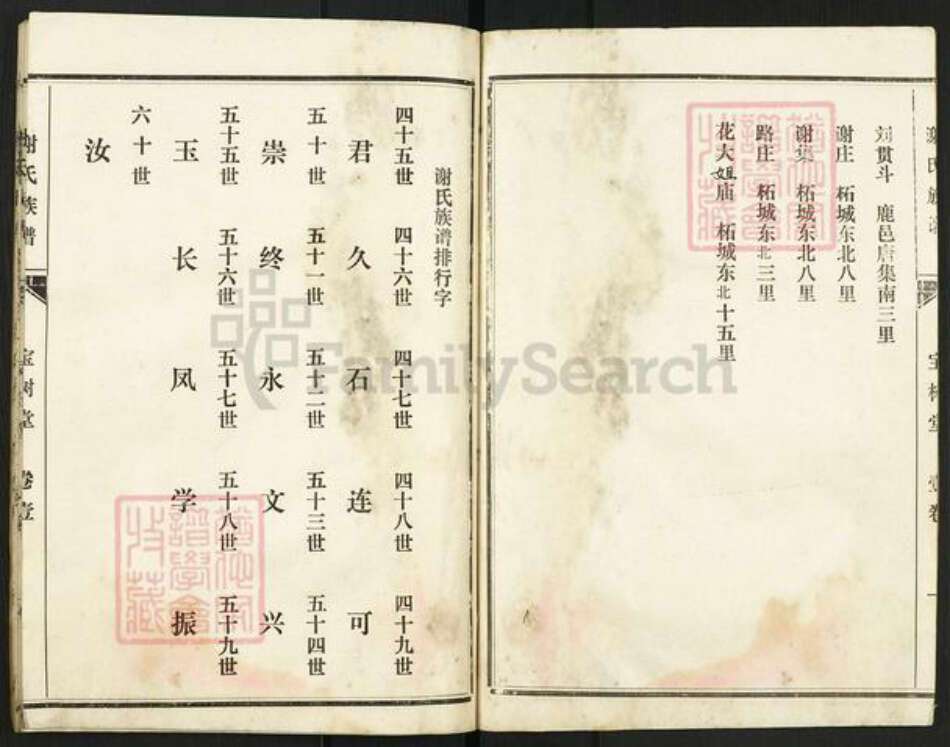 刘贯斗 鹿邑唐集南三里
谢庄 柘城东北八里
谢集 柘城东北八里
路庄 柘城东北三里
花大姐庙 柘城东北十五里
谢氏族谱
宝树堂
壹卷
谢氏族谱排行字
四十五世 四十六世 四十七世 四十八世 四十九世
君 久 石 连 可
五十世 五十一世 五十二世 五十三世 五十四世
崇 终 永 文 兴
五十五世 五十六世 五十七世 五十八世 五十九世
玉 长 凤 学 振
六十世
汝
谢氏族谱
宝树堂
卷壹
FamilySearch